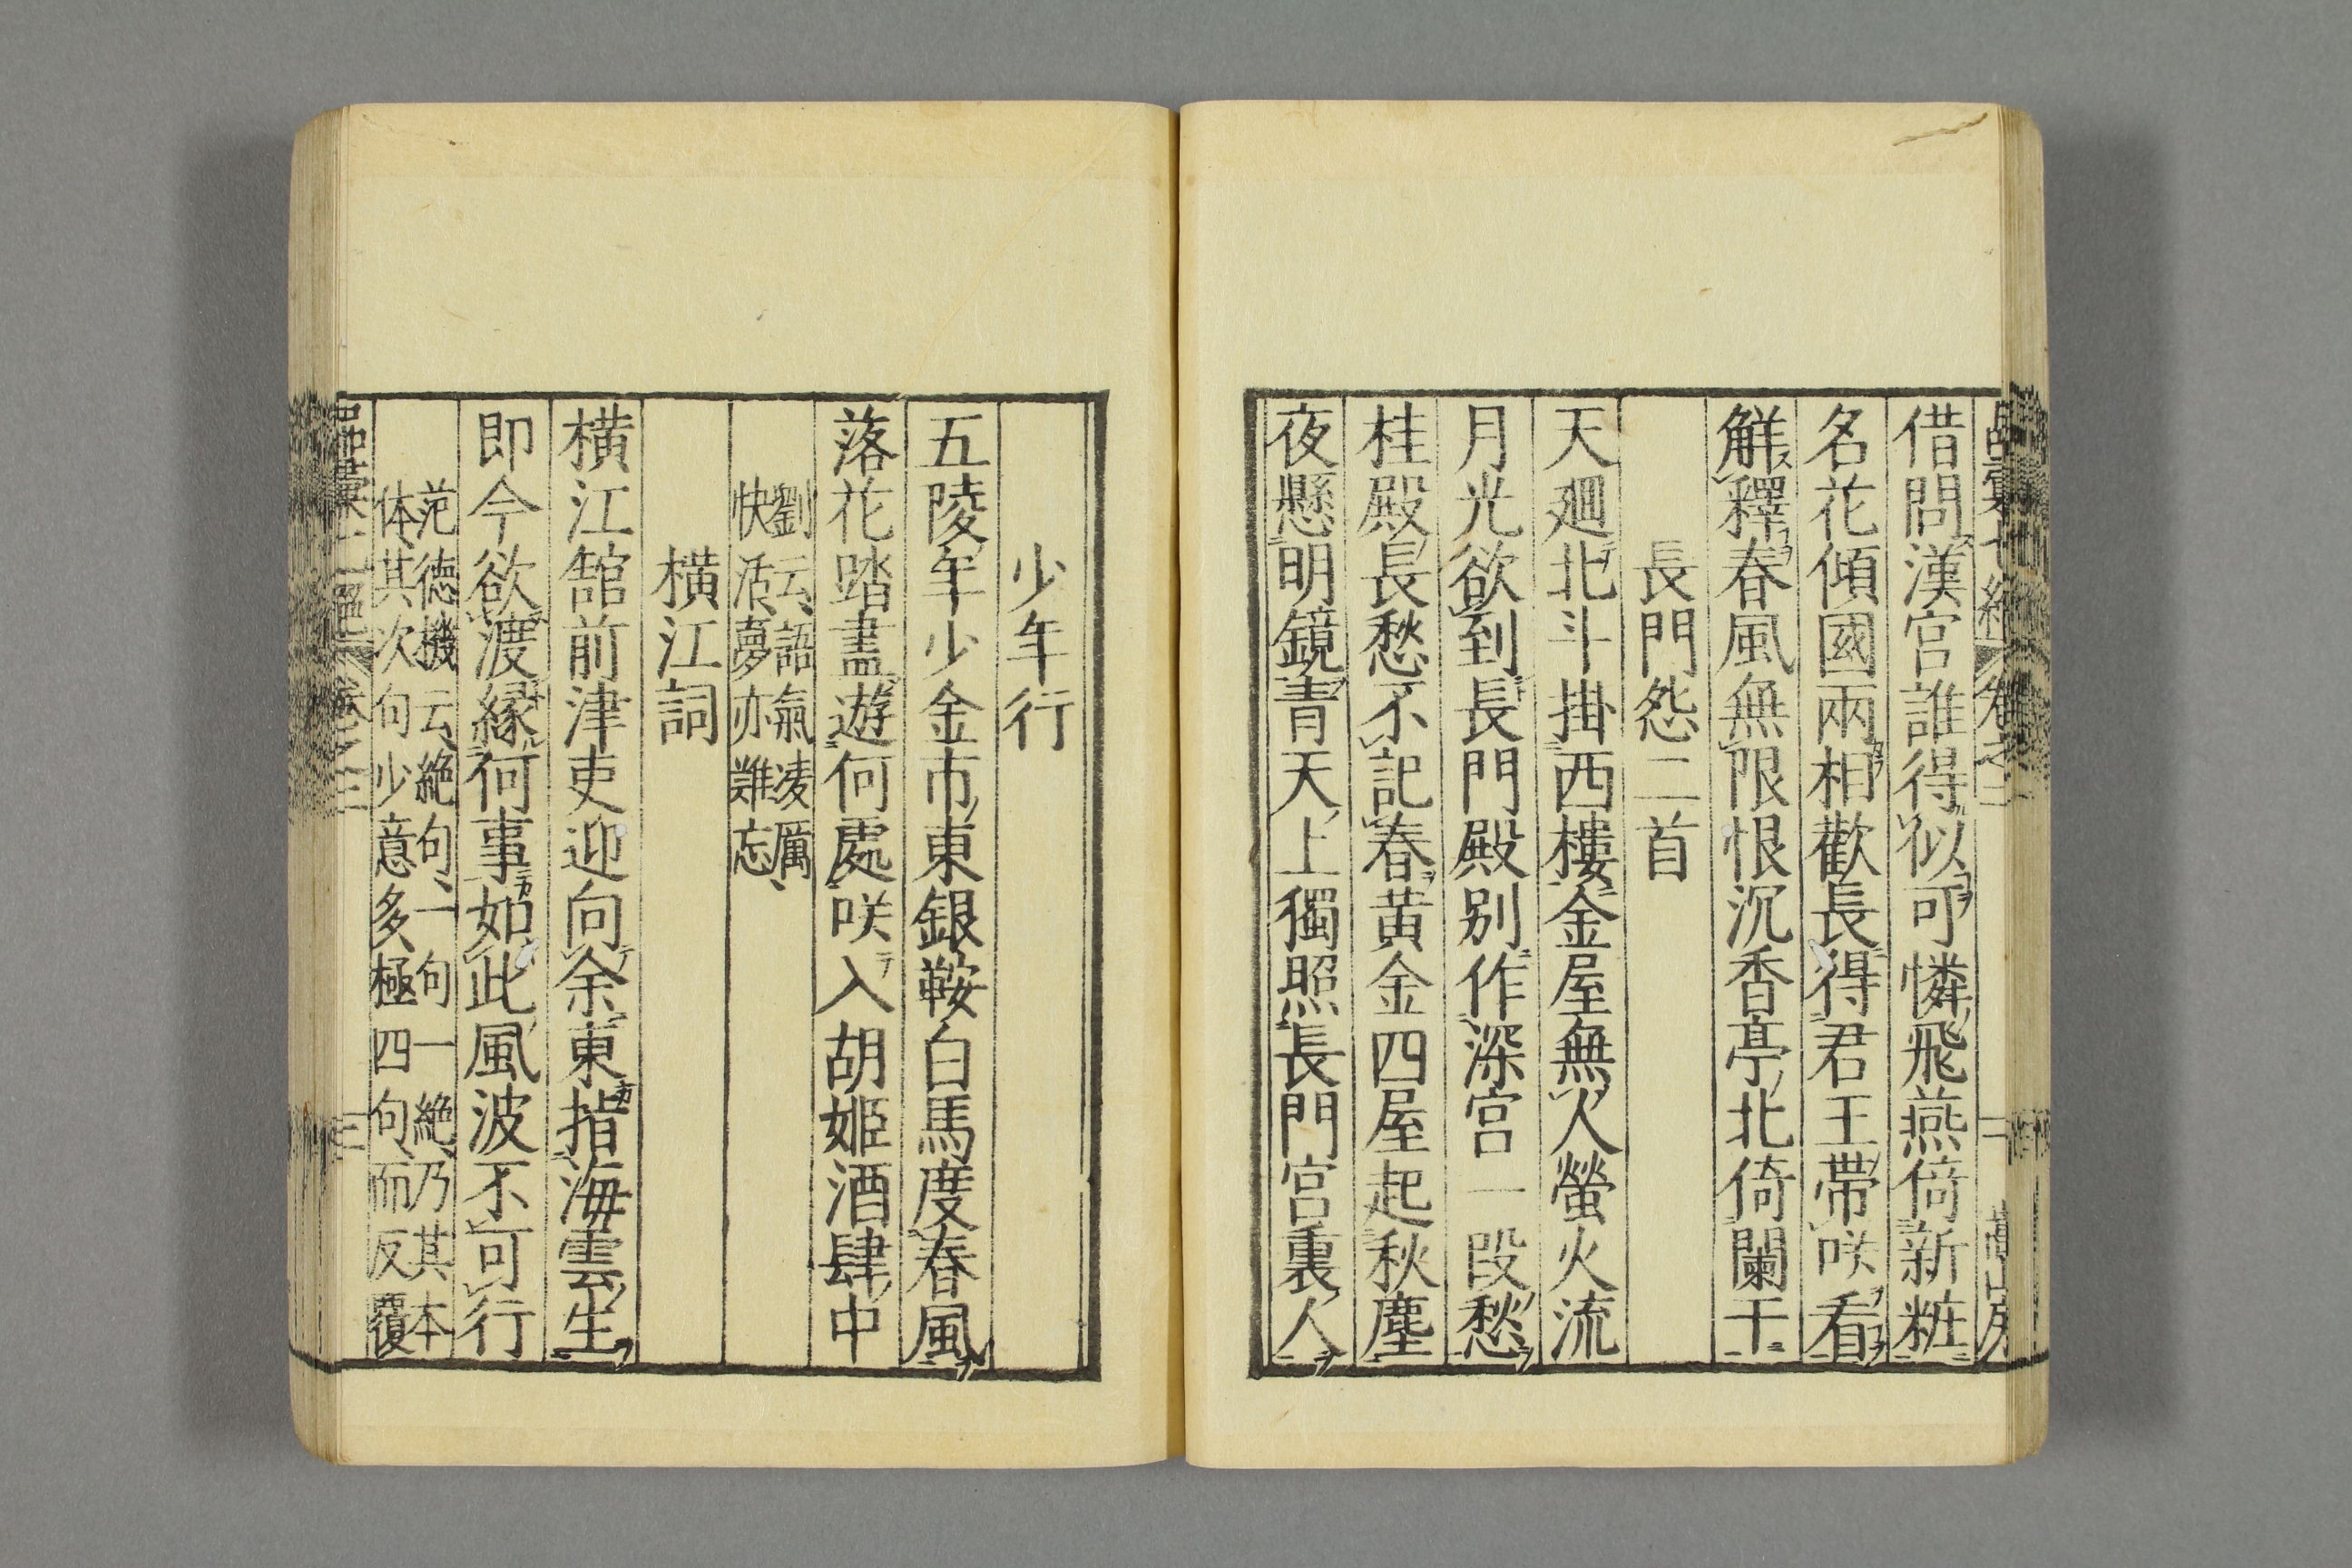 借問漢宮誰得似可憐飛燕倚新粧
名花傾國兩相歡長得君王帶咲看
觧釋春風無限恨沉香亭北倚闌干
長門怨二首
天廻北斗掛西樓金屋無人螢火流
月光欲到長門殿別作深宮一段愁
桂殿長愁不記春黄金四屋起秋塵
夜懸明鏡青天上獨照長門宮裏人
少年行
五陵年少金市東銀鞍白馬度春風
落花踏盡遊何處咲入胡姬酒肆中
劉云語氣凌厲
快活夢亦難忘
橫江詞
橫江舘前津吏迎向余東指海雲生
即今欲渡縁何事如此風波不可行
范德機云絶句一句一絶乃其本
体其次句少意多極四句而反覆